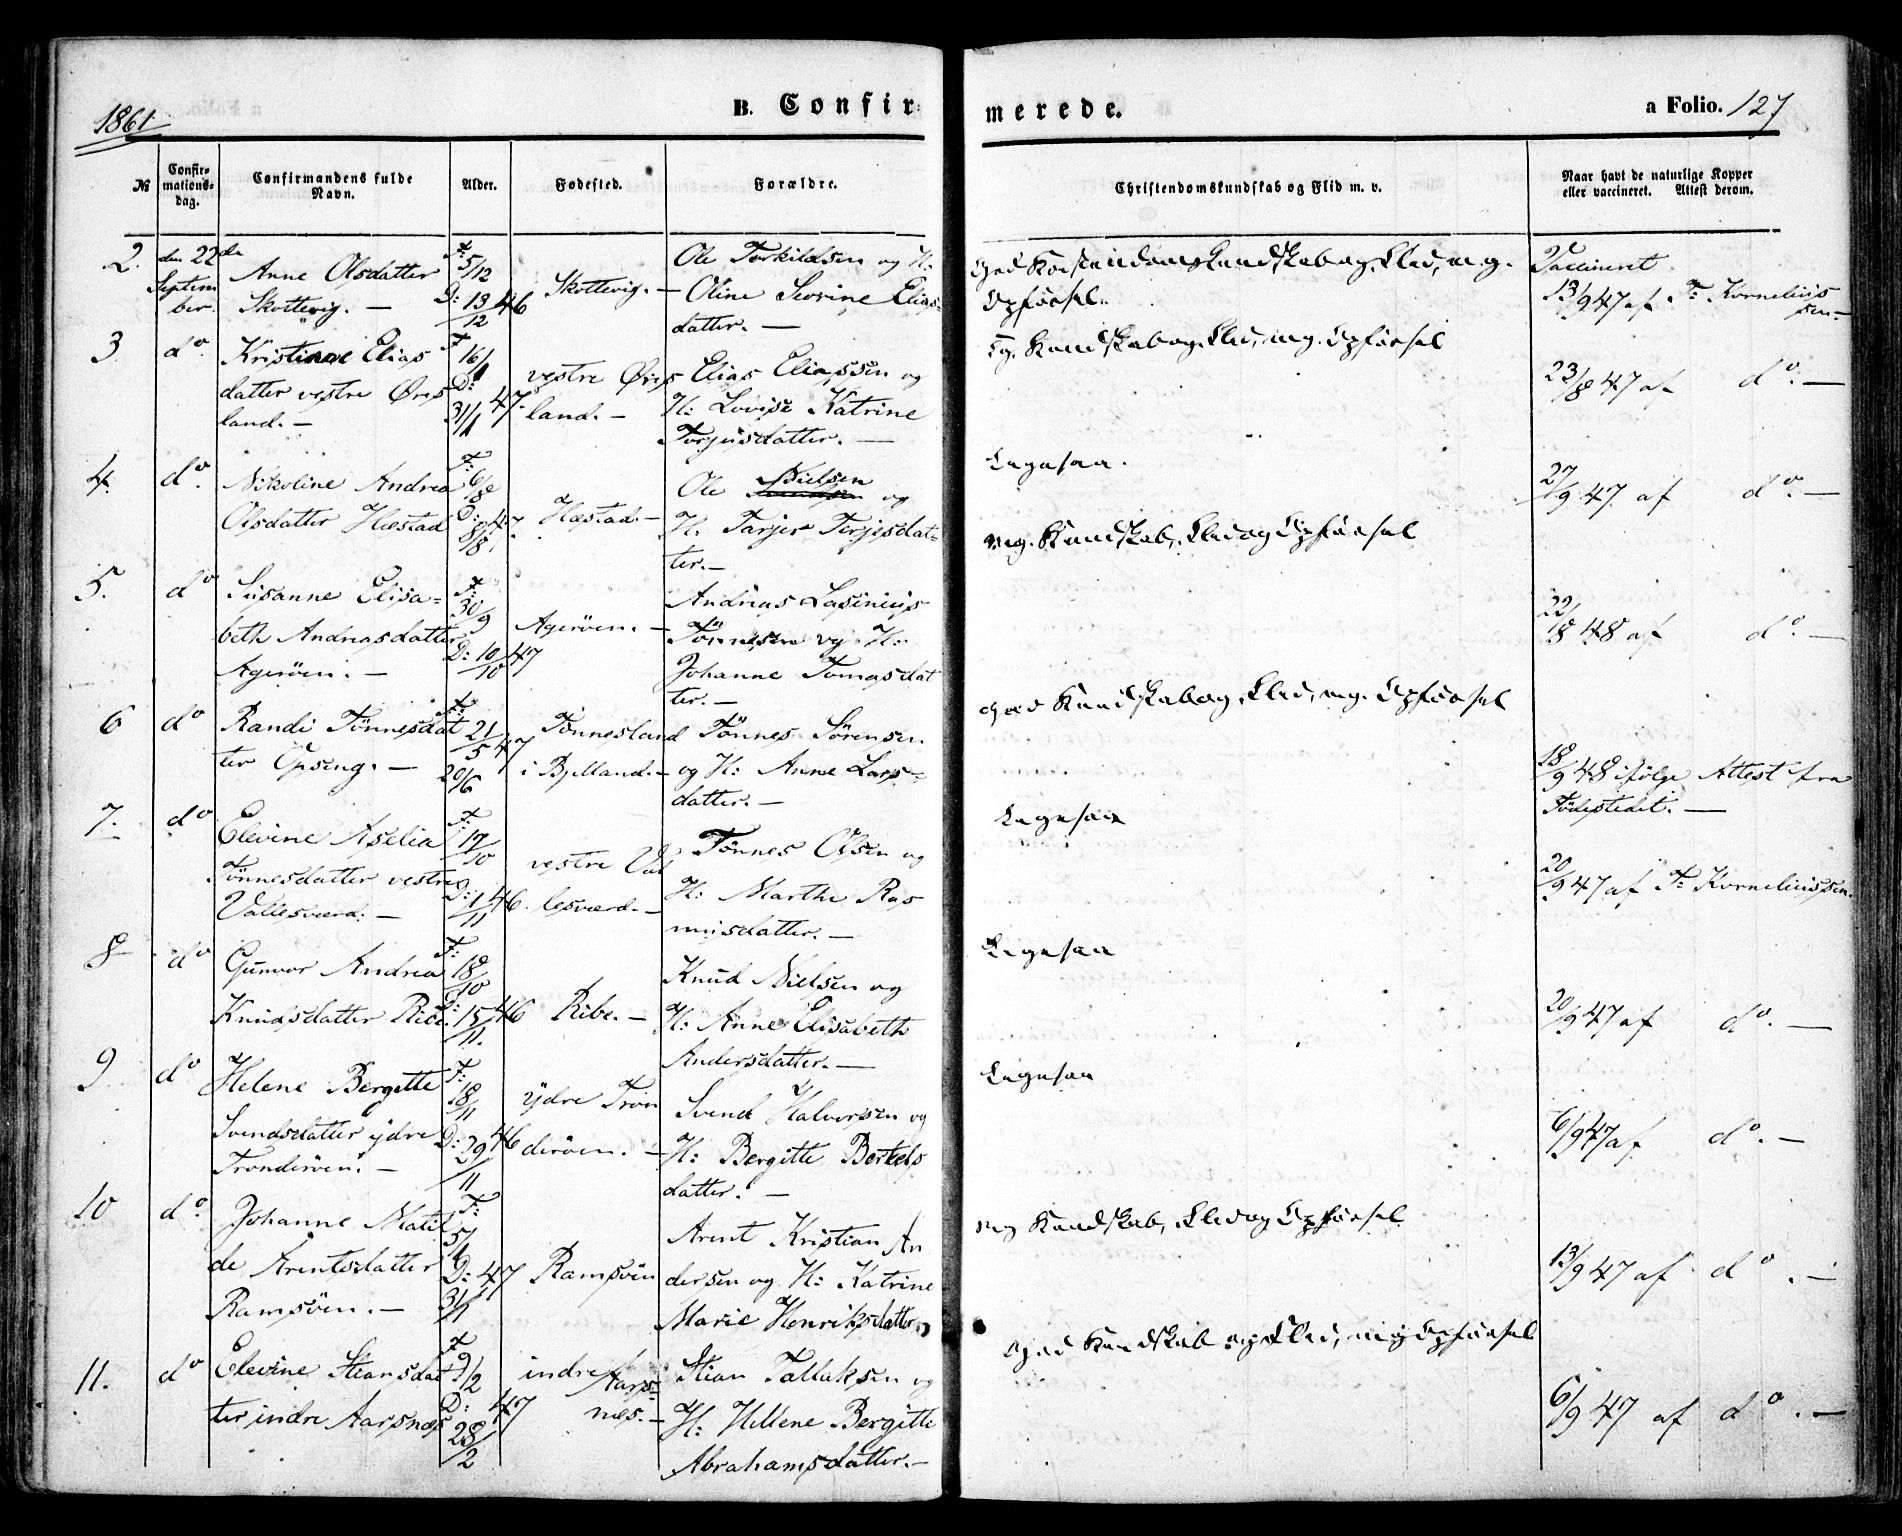 1861
B. Confir-
merede.
a Folio. 127
No
Confir-
mations-
dag.
Confirmandens fulde
Navn.
Alder.
Fødested.
Forældre.
Christendomskundskab og Flid m. v.
Naar havt de naturlige Kopper
eller vaccineret. Attest derom.
2. den 22de
Septem
ber.
Anne Olsdatter
Skottevig. —
F: 5/12
D: 13/12 46
Skottevig. —
Ole Torkildsen og H:
Oline Severine Elias-
datter. —
god Kristendomskundskab og Flid, mg.
Opførsel.
Vaccineret
13/9 47 af T: Kornelius
sen —
3 do.
Kristine Elias
datter vestre Øres
land. —
F 16/1
D: 31/1 47.
vestre Øres
land. —
Elias Eliassen og
H: Lovise Katrine
Torjusdatter. —
Kundskab og Flid, mg. Opførsel
23/8 47 af do. —
4. do.
Nikoline Andrea
Olsdatter Hæstad
F: 6/8
D: 8/8 47.
Hæstad. —
Ole Nielsen og
H: Tarjer Terjesdat-
ter. —
Ligesaa.
27/9 47 af do. —
5. do
Susanne Elisa-
beth Andreasdatter
Agerøen. —
F: 30/9
D: 10/10 47
Agerøen. —
Andreas Lasinius
Tønnesen og H:
Johanne Tomasdat
ter. —
mg. Kundskab, Flid og Opførsel
22/8 48 af do. —
6 do
Randi Tønnesdat
ter Opseng. —
F: 21/5 47
20/6
Tønnesland
i Bjelland. —
Tønnes Sørensen
og H: Anne Lars-
datter. —
god Kundskab og Flid, mg. Opførsel
18/9 48 ifølge Attest fra
Fødestedet. —
7. do
Elevine Aselia
Tønnesdatter vestre
Vallesværd. —
F: 17/10
D: 1/11 46.
vestre Val
lesværd. —
Tønnes Olsen og
H: Marthe Ras
musdatter. —
Ligesaa
20/9 47 af T: Korneliussen.
8 do
Gunvor Andrea
Knudsdatter Ribe.
F: 18/10
D: 15/11. 46
Ribe. —
Knud Nielsen og
H: Anne Elisabeth
Andersdatter. —
Ligesaa
20/9 47 af do. —
9 do
Helene Bergitte
Svendsdatter ydre
Tronderøen. —
F: 18/11
D: 29/11 46
ydre Tron
derøen. —
Svend Halvorsen og
H: Bergitte Berkels
datter. —
Ligesaa
6/9 47 af do. —
10 do.
Johanne Matil
de Arentsdatter
Ramsøen. —
F: 5/1
D: 31/1 47
Ramsøen
Arent Kristian An
dersen og H: Katrine
Marie Henriksdatter
mg Kundskab, Flid og Opførsel
13/9 47 af do. —
11. do
Elevine Steansdat
ter indre Aarsnes
F 9/2
D: 28/2 47
indre Aars-
nes. —
Stian Tallaksen og
H: Hellene Bergitte
Abrahamsdatter. —
god Kundskab og Flid, mg Opførsel
6/9 47 af do. —